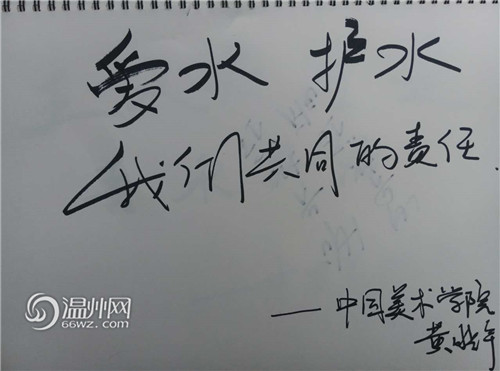 爱水 护水
我们共同的责任
——中国美术学院
黄
温州网
66wz.com